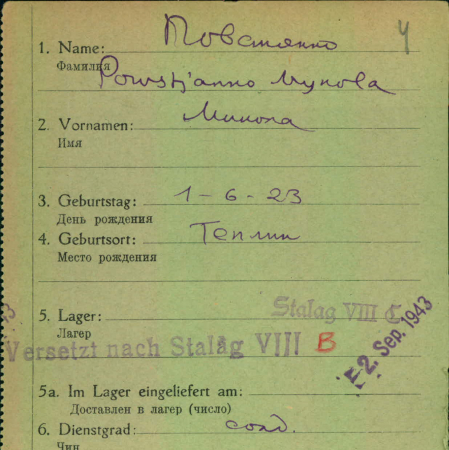 1. Name: Повстянко 4
Фамилия
Powstjanno Mykola
2. Vornamen: Микола
Имя
3. Geburtstag: 1-6-23
День рождения
4. Geburtsort: Теплик
Место рождения
5. Lager: Stalag VIII C
Лагерь
Versetzt nach Stalag VIII B
E 2. Sep. 1943
5a. Im Lager eingeliefert am:
Доставлен в лагерь (число)
6. Dienstgrad: солд.
Чин